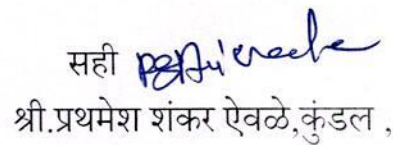 सही
श्री.प्रथमेश शंकर ऐवळे,कुंडल ,